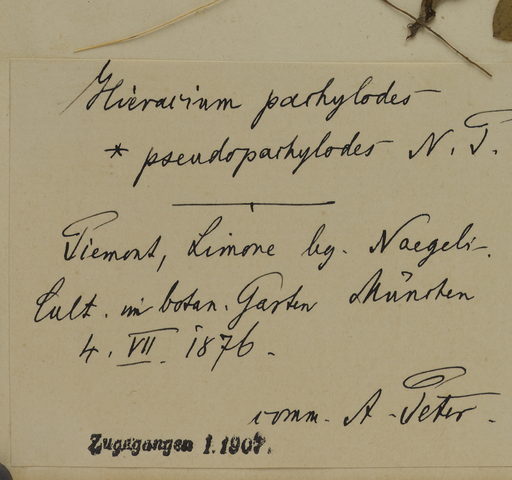 Hieracium pachylodes
* pseudopachylodes N. P.
Piemont, Limone lg. Naegeli.
Cult. im botan. Garten München
4. VII. 1876.
comm. A. Peter.
Zugegangen 1.1907.